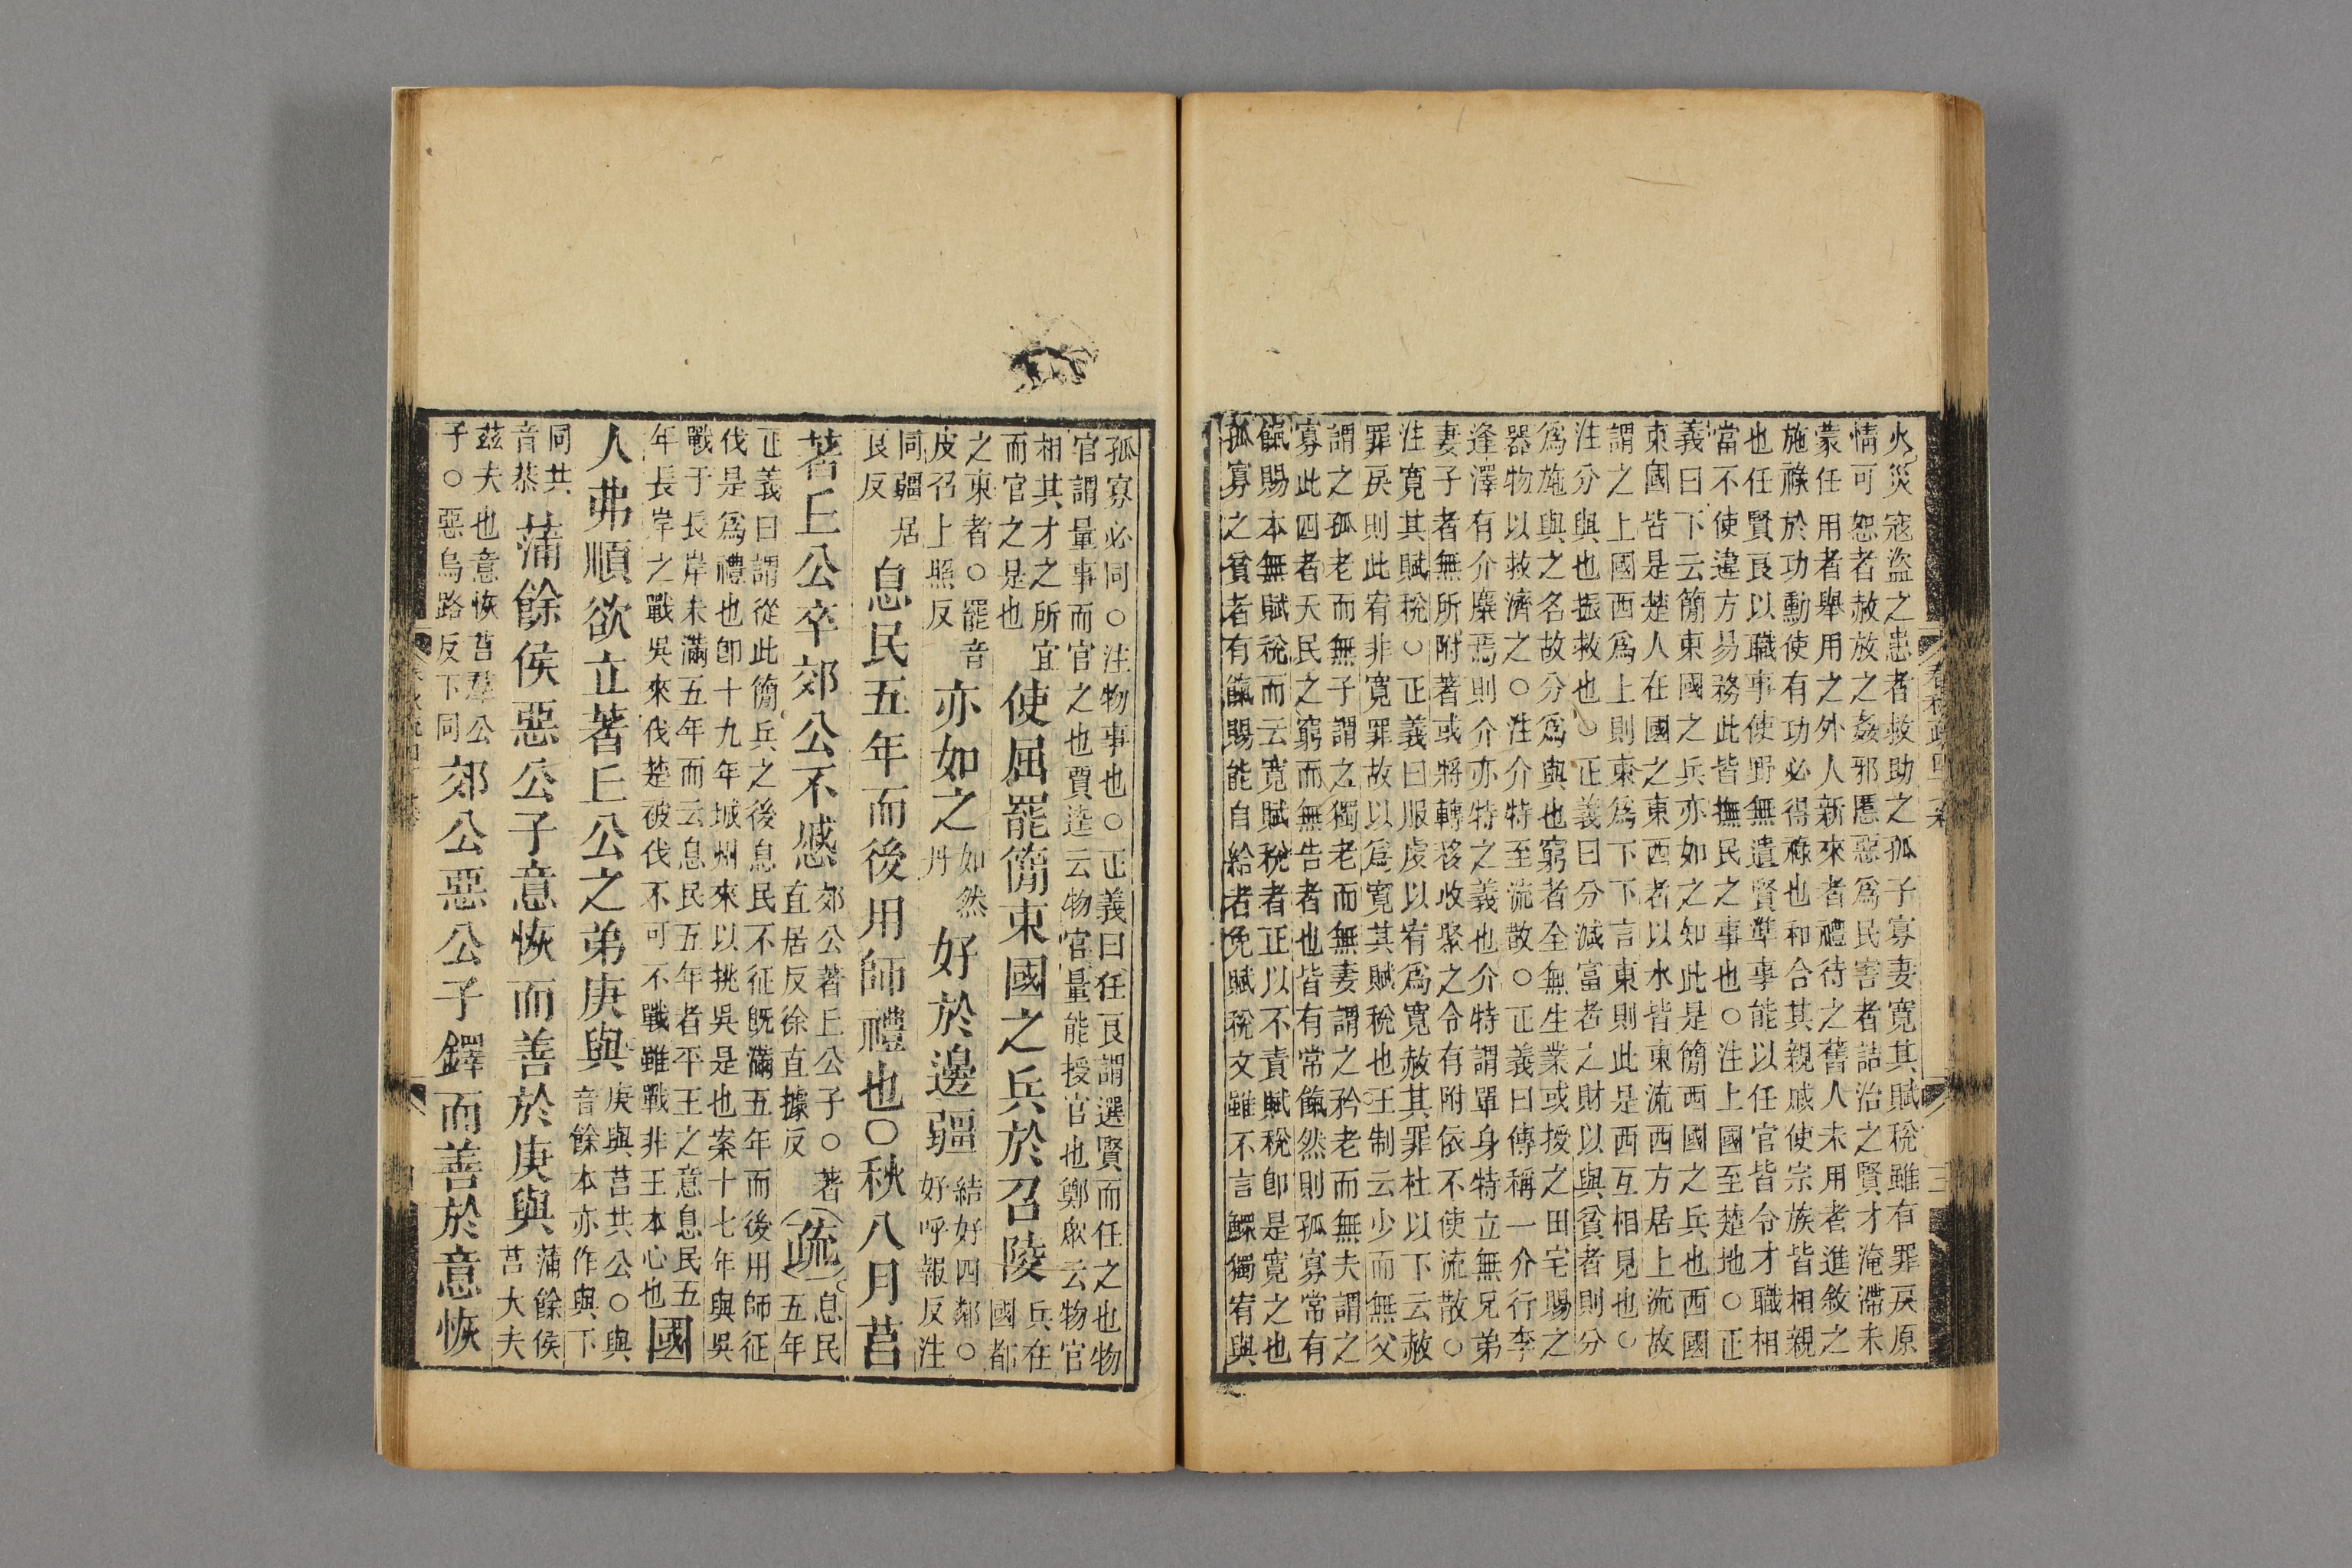 火災寇盜之患者救助之孤子寡妻寬其賦稅雖有罪戾原
情可恕者赦放之姦邪慝惡爲民害者詰治之賢才淹滯未
蒙任用者舉用之外人新來者禮待之舊人未用者進敘之
施祿於功勳使有功必得祿也和合其親戚使宗族皆相親
也任賢良以職事使野無遺賢準事能以任官皆令才職相
當不使違方易務此皆撫民之事也○注上國至楚地○正
義曰下云簡東國之兵亦如之知此是簡西國之兵也西國
東國皆是楚人在國之東西者以水皆東流西方居上流故
謂之上國西爲上則東爲下下言東則此是西互相見也○
注分與也振救也○正義曰分減富者之財以與貧者則分
爲施與之名故分爲與也窮者全無生業或授之田宅賜之
器物以救濟之○注介特至流散○正義曰傳稱一介行李
逢澤有介麋焉則介亦特之義也介特謂單身特立無兄弟
妻子者無所附著或將轉移收聚之令有附依不使流散○
注寬其賦稅○正義曰服虔以宥爲寬赦其罪杜以下云赦
罪戾則此宥非寬罪故以爲寬其賦稅也王制云少而無父
謂之孤老而無子謂之獨老而無妻謂之矜老而無夫謂之
寡此四者天民之窮而無告者也皆有常餼然則孤寡常有
餼賜本無賦稅而云寬賦稅者正以不責賦稅卽是寬之也
孤寡之貧者有餼賜能自給者免賦稅文雖不言鰥獨宥與
孤寡必同○注物事也○正義曰任良謂選賢而任之也物
官謂量事而官之也賈逵云物官量能授官也鄭眾云物官
相其才之所宜
而官之是也
使屈罷簡東國之兵於召陵
兵在
國都
之東者○罷音
皮召上照反
亦如之
如然
丹
好於邊疆
結好四鄰○
好呼報反注
同疆居
良反
息民五年而後用師禮也○秋八月莒
著丘公卒郊公不慼
郊公著丘公子○著
直居反徐直據反
疏
息民
五年
正義曰謂從此簡兵之後息民不征旣滿五年而後用師征
伐是爲禮也卽十九年城州來以挑吳是也案十七年與吳
戰于長岸未滿五年而云息民五年者平王之意息民五
年長岸之戰吳來伐楚破伐不可不戰雖戰非王本心也
國
人弗順欲立著丘公之弟庚與
庚與莒共公○與
音餘本亦作與下
同共
音恭
蒲餘侯惡公子意恢而善於庚與
蒲餘侯
莒大夫
茲夫也意恢莒羣公
子○惡烏路反下同
郊公惡公子鐸而善於意恢